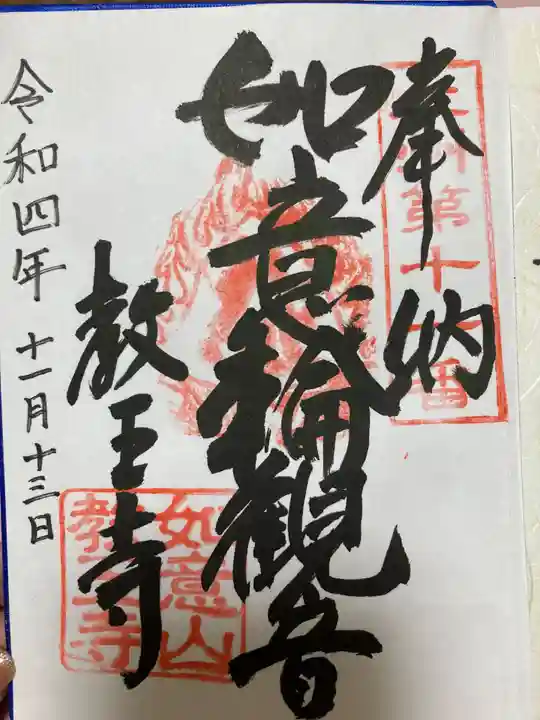 奉納
第十
番
如意輪観音
教王寺
如意山
教王寺
令和四年 十一月十三日